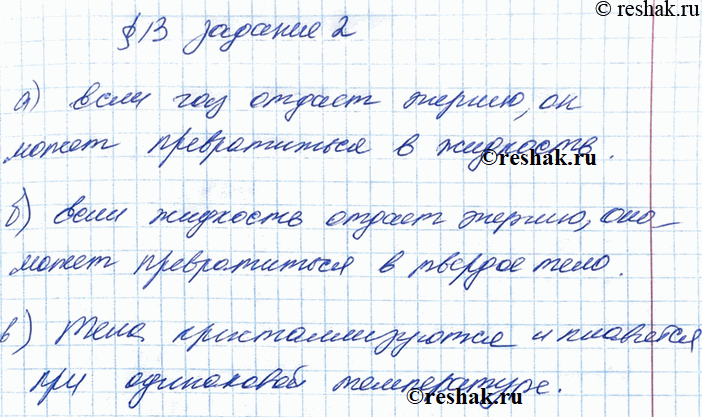 ©reshak.ru
§13 задание 2
а) если газ отдаст энергию, он
может превратиться в жидкость.
©reshak.ru
б) если жидкость отдает энергию, она
может превратиться в твердое тело.
в) Тела кристаллизуются и плавятся
при одинаковой температуре.
©reshak.ru